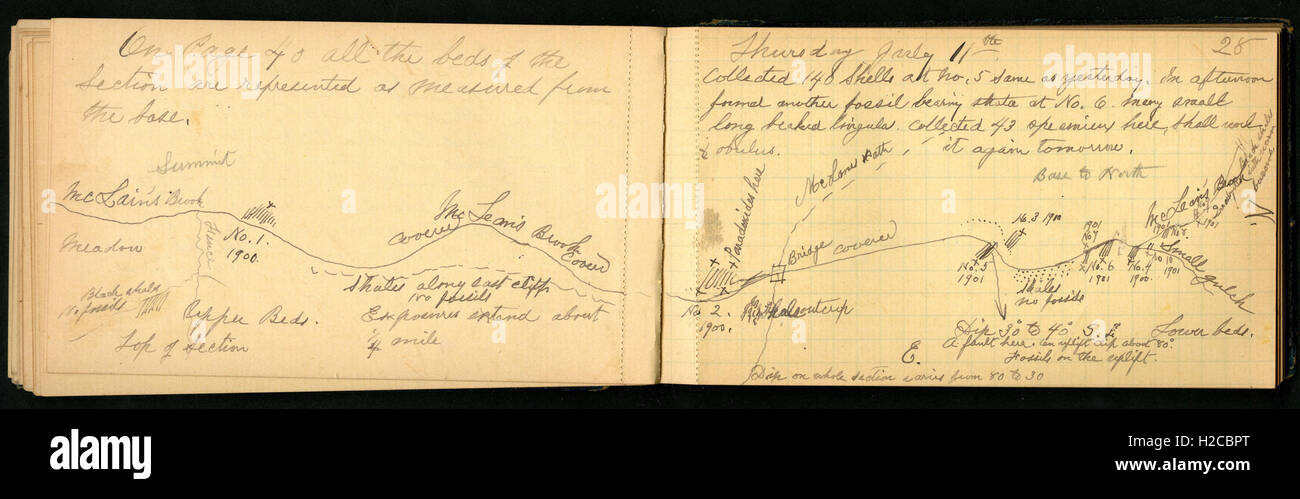 On Page 40 all the beds of the
Section are represented as measured from
the base.
Summit
McLain's Brook
Fence
Meadow
No. 1.
1900.
Black shale
No fossils
Upper Beds.
Top of Section
covered
McLean's Brook
covered
Shales along east cliff
no fossils
Exposures extend about
1/4 mile
28
Thursday July 11th
Collected 140 shells at No. 5 same as yesterday. In afternoon
found another fossil bearing strata at No. 6. Many small
long beaked lingula. Collected 43 specimens here, shall work
& obolus. it again tomorrow.
Base to North
Paradoxides here
McLeans Path
Bridge
covered
No. 2.
1900.
outcrop
No. 3 1900
No. 5
1901
Shales
no fossils
1901
No. 7
No. 6
1901
No. 4
1900
No 10
1901
McLean's Brook
No 8
1901
Small gulch
N
Dip 30° to 40° S.
A fault here. an uplift dip about 80°.
Fossils on the uplift.
Lower beds.
E.
Dip on whole section varies from 80 to 30
alamy stock photo
H2CBPT